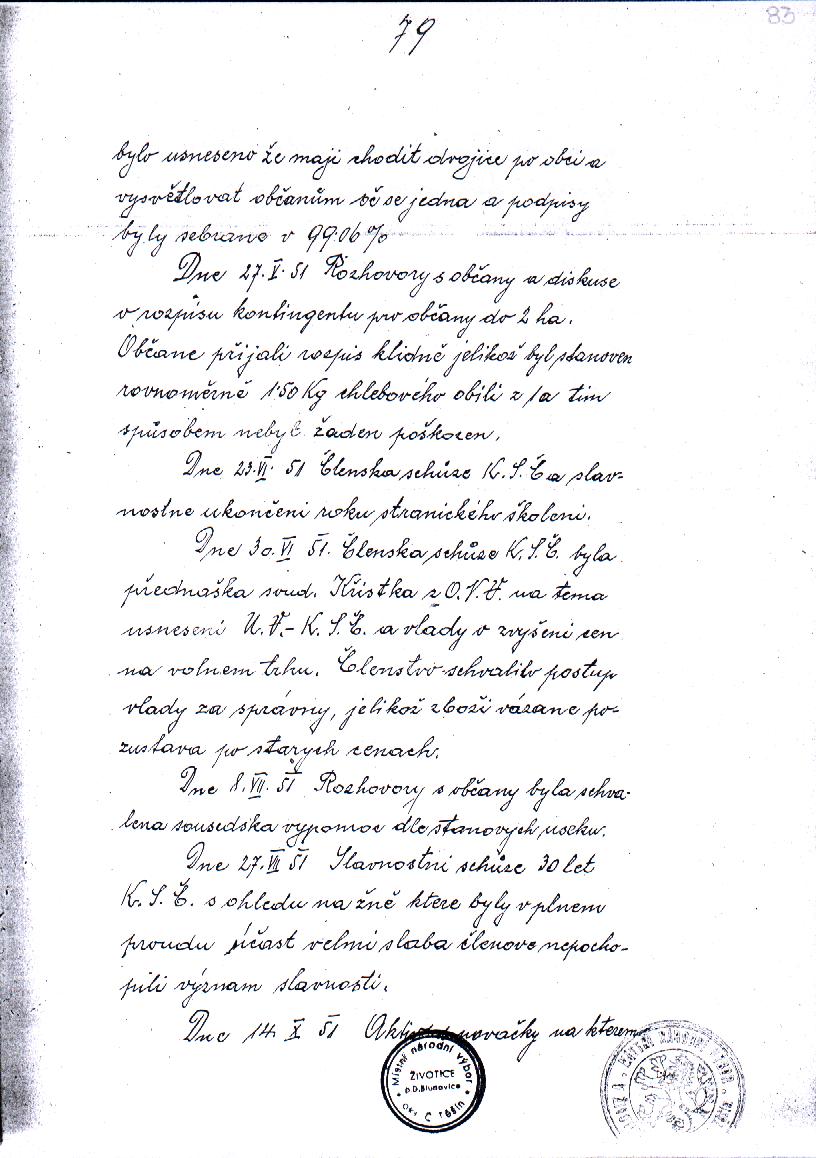 79
83
bylo usneseno že maji chodit dvojice po obci a
vysvětlovat občanům oč se jedna a podpisy
byly sebrano v 99.06%
Dne 27.V.51 Rozhovory s občany a diskuse
o rozpisu kontingentu pro občany do 2 ha.
Občane přijali rozpis klidně jelikož byl stanoven
rovnoměrně 1.50 Kg chlebového obili z 1a tim
spůsobem nebyl žaden poškozen.
Dne 23.VI. 51 Členska schůze K.S.Č a slav-
nostne ukončeni roku stranického školeni.
Dne 30.VI 51. Členska schůze K.S.Č. byla
přednaška soud. Křistka z O.V.V. na tema
usneseni U.V.- K.S.Č. a vlady o zvyšeni cen
na volnem trhu. Členstvo schvalilo postup
vlady za správny, jelikož zboži vázane po-
zustava po starych cenach.
Dne 8.VII. 51 Rozhovory s občany byla schva-
lena sousedska vypomoc dle stanovych useku.
Dne 27.VII 51 Slavnostni schůze 30 let
K.S.Č. s ohledu na žně ktere byly v plnem
proudu účast velmi slaba členove nepocho-
pili význam slavnosti.
Dne 14. X 51 na kterem
Místní národní výbor
ŽIVOTICE
p.D.Bludovice
okr. Č Těšín